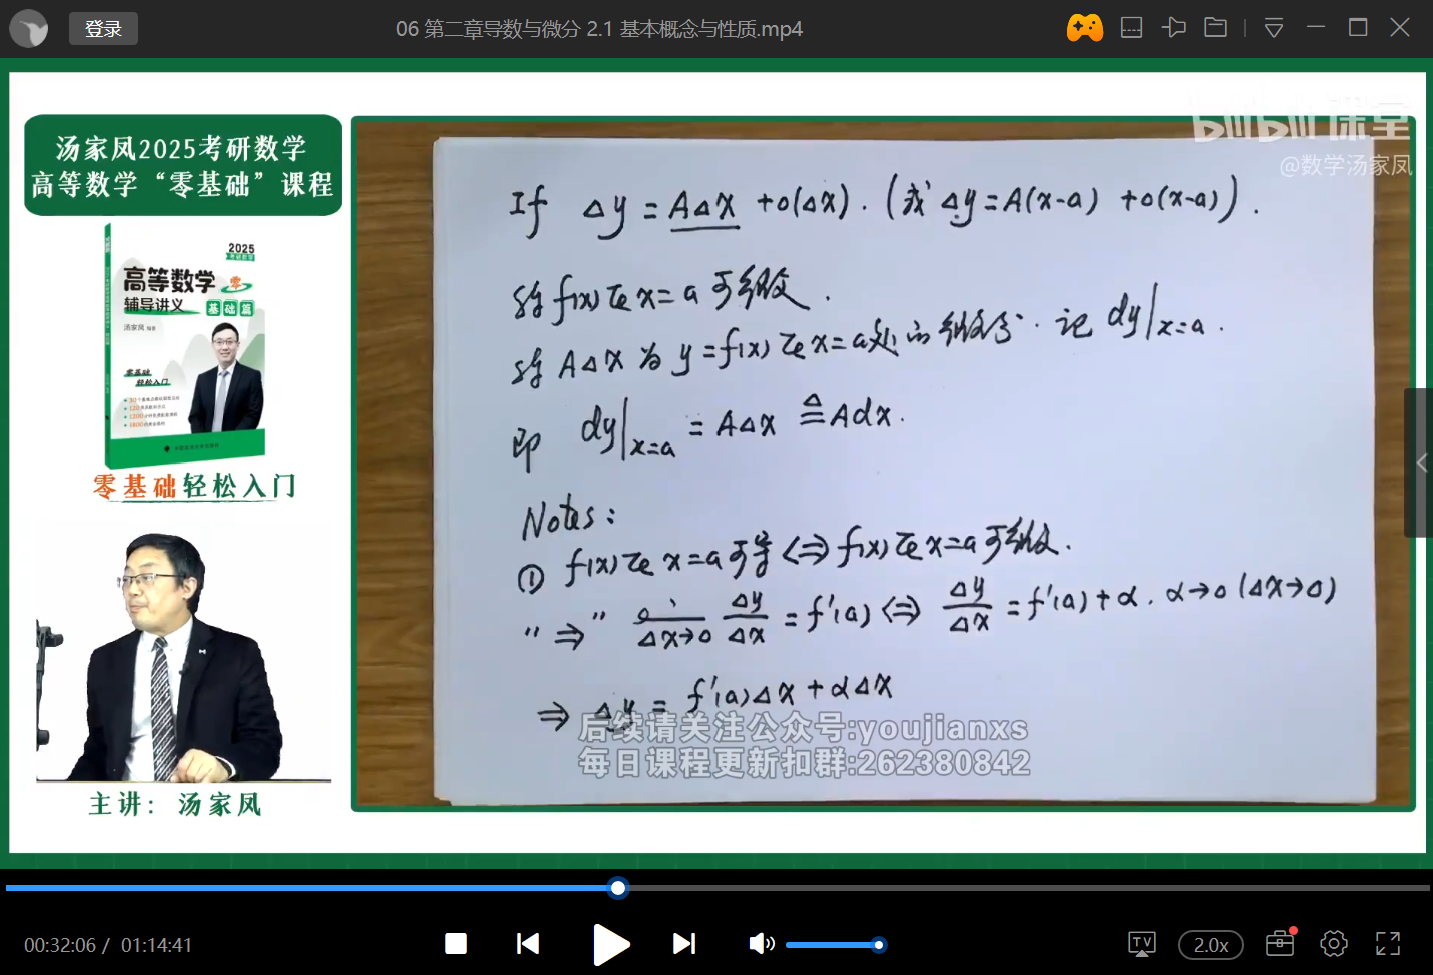 登录
06 第二章导数与微分 2.1 基本概念与性质.mp4
汤家凤2025考研数学
高等数学“零基础”课程
2025
高等数学 零
辅导讲义 基础篇
汤家凤 编著
零基础
轻松入门
零基础轻松入门
主讲：汤家凤
bilibili 课堂
@数学汤家凤
If Δy = AΔx + o(Δx). (或 Δy = A(x-a) + o(x-a)).
称 f(x) 在 x=a 可微.
称 AΔx 为 y=f(x) 在 x=a 处的微分. 记 dy|x=a.
即 dy|x=a = AΔx ≜ Adx.
Notes:
① f(x) 在 x=a 可导 ⇔ f(x) 在 x=a 可微.
"⇒" lim Δx→0 Δy/Δx = f'(a) ⇔ Δy/Δx = f'(a) + α. α→0 (Δx→0)
⇒ Δy = f'(a)Δx + αΔx
后续请关注公众号:youjianxs
每日课程更新扣群:262380842
00:32:06 / 01:14:41
TV
2.0x